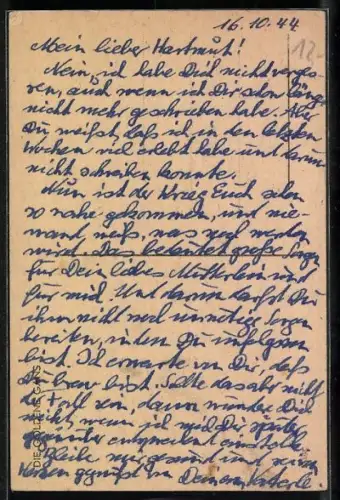 16.10.44
12.-
Mein lieber Hartmut!
Nein, ich habe Dich nicht verges-
sen, auch wenn ich Dir schon länger
nicht mehr geschrieben habe. Aber
Du weißt, daß ich in den letzten
Wochen viel erlebt habe und darum
nicht schreiben konnte.
Nun ist der Krieg Euch schon
so nahe gekommen, und nie-
mand weiß, was noch werden
wird. Das bedeutet große Sorgen
für Dein liebes Mütterlein und
für mich. Und darum darfst Du
ihm nicht noch unnötige Sorgen
bereiten, indem Du unfolgsam
bist. Ich erwarte von Dir, daß
Du brav bist. Sollte das aber nicht
der Fall sein, dann wundre Dich
nicht, wenn ich mich Dir später
gegenüber entsprechend einstelle.
Bleibe mir gesund und sei von
Herzen gegrüßt von Deinem
DIE GOLDENE GANS